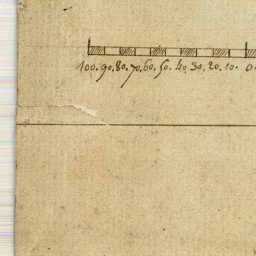 100. 90. 80. 70. 60. 50. 40. 30. 20. 10. 0